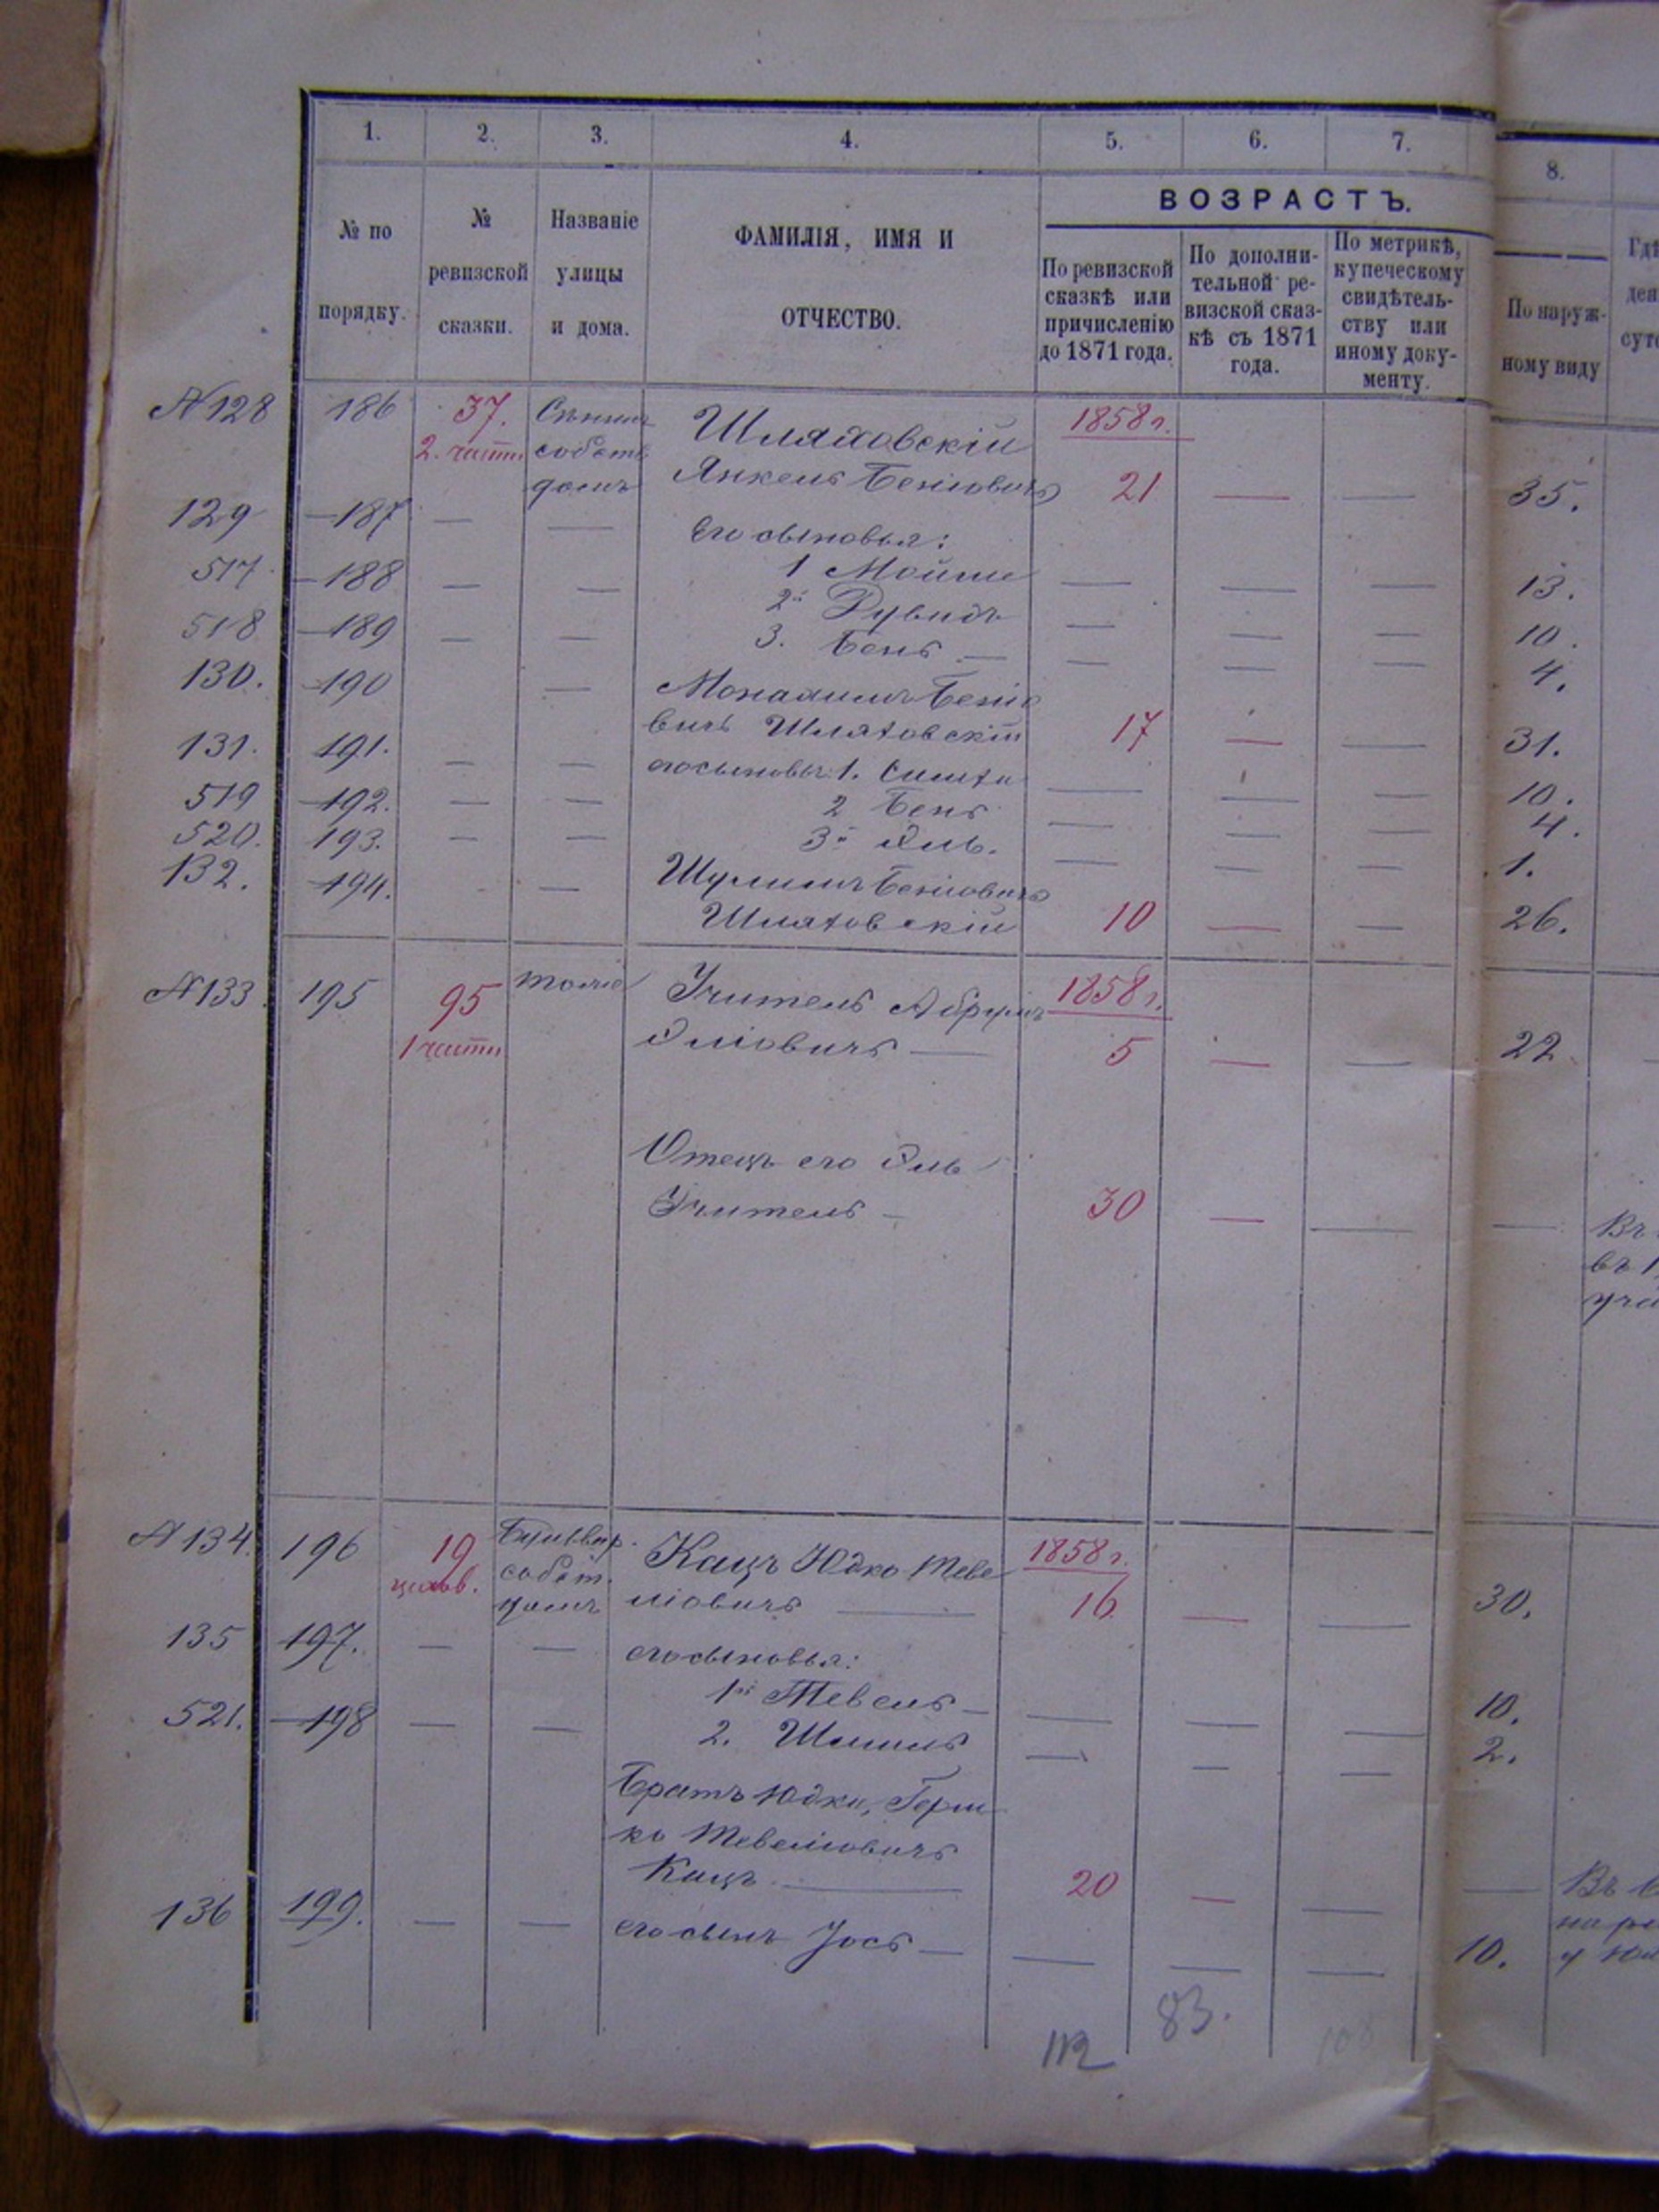 1. 2. 3. 4. 5. 6. 7. 8.
ВОЗРАСТЪ.
№ по порядку.
№ ревизской сказки.
Названіе улицы и дома.
ФАМИЛІЯ, ИМЯ И ОТЧЕСТВО.
По ревизской сказкѣ или причисленію до 1871 года.
По дополнительной ревизской сказкѣ съ 1871 года.
По метрикѣ, купеческому свидѣтельству или иному документу.
По наружному виду
N 128 186 37. Шляховскій 1858 г.
2. части собств
домъ Янкель Беніовичъ 21 — — 35.
129 187 — — Его сыновья:
517 188 — — 1 Мойше — — — 13.
518 189 — — 2й Рувидъ — — — 10.
3. Бень — — — — 4.
130. 190 — Монахимъ Беніо
вичъ Шляховскій 17 — — 31.
131. 191. — — его сыновья 1. Симха — — — 10.
519 192. — — 2 Бень — — — 4.
520. 193. — — 3й Эль. — — — 1.
132. 194. — Шулимъ Беніовичъ
Шляховскій 10 — — 26.
N 133. 195 95 тоже Учитель Абрумъ 1858 г.
1 части Эліовичъ — 5 — — 22
Отецъ его Эль
Учитель — 30 — — —
N 134. 196 19 Бульвар. Кацъ Юдко Теве 1858 г.
цехов. собст. домъ ліовичъ — 16 — — 30.
135 197. — — его сыновья:
1й Тевель — — — — 10.
521. 198 — — 2. Шмиль — — — 2.
Братъ Юдки, Герш
ко Тевеліовичъ
Кацъ — 20 — — —
136 199. — — его сынъ Іось — — — — 10.
112 83.